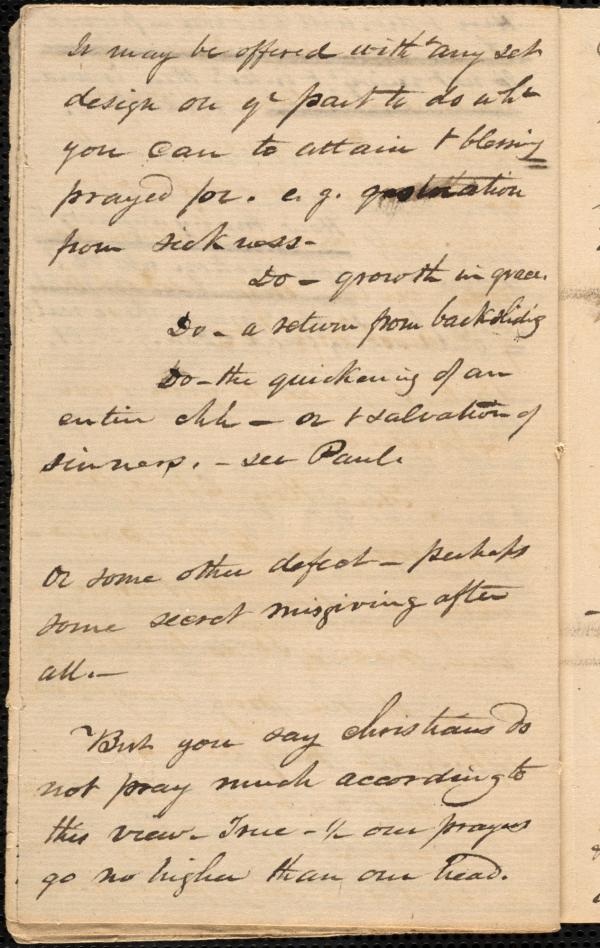 It may be offered witht any set
design on yr part to do wht
you can to attain t blessing
prayed for. e. g.
from sickness-
Do - growth in grace.
Do - a return from backslidig
Do - the quickening of an
entire chh - or t salvation of
sinners. - see Paul.
Or some other defect - perhaps
some secret misgiving after
all. -
But you say christians do
not pray much according to
this view - True - & our prayers
go no higher than our head.